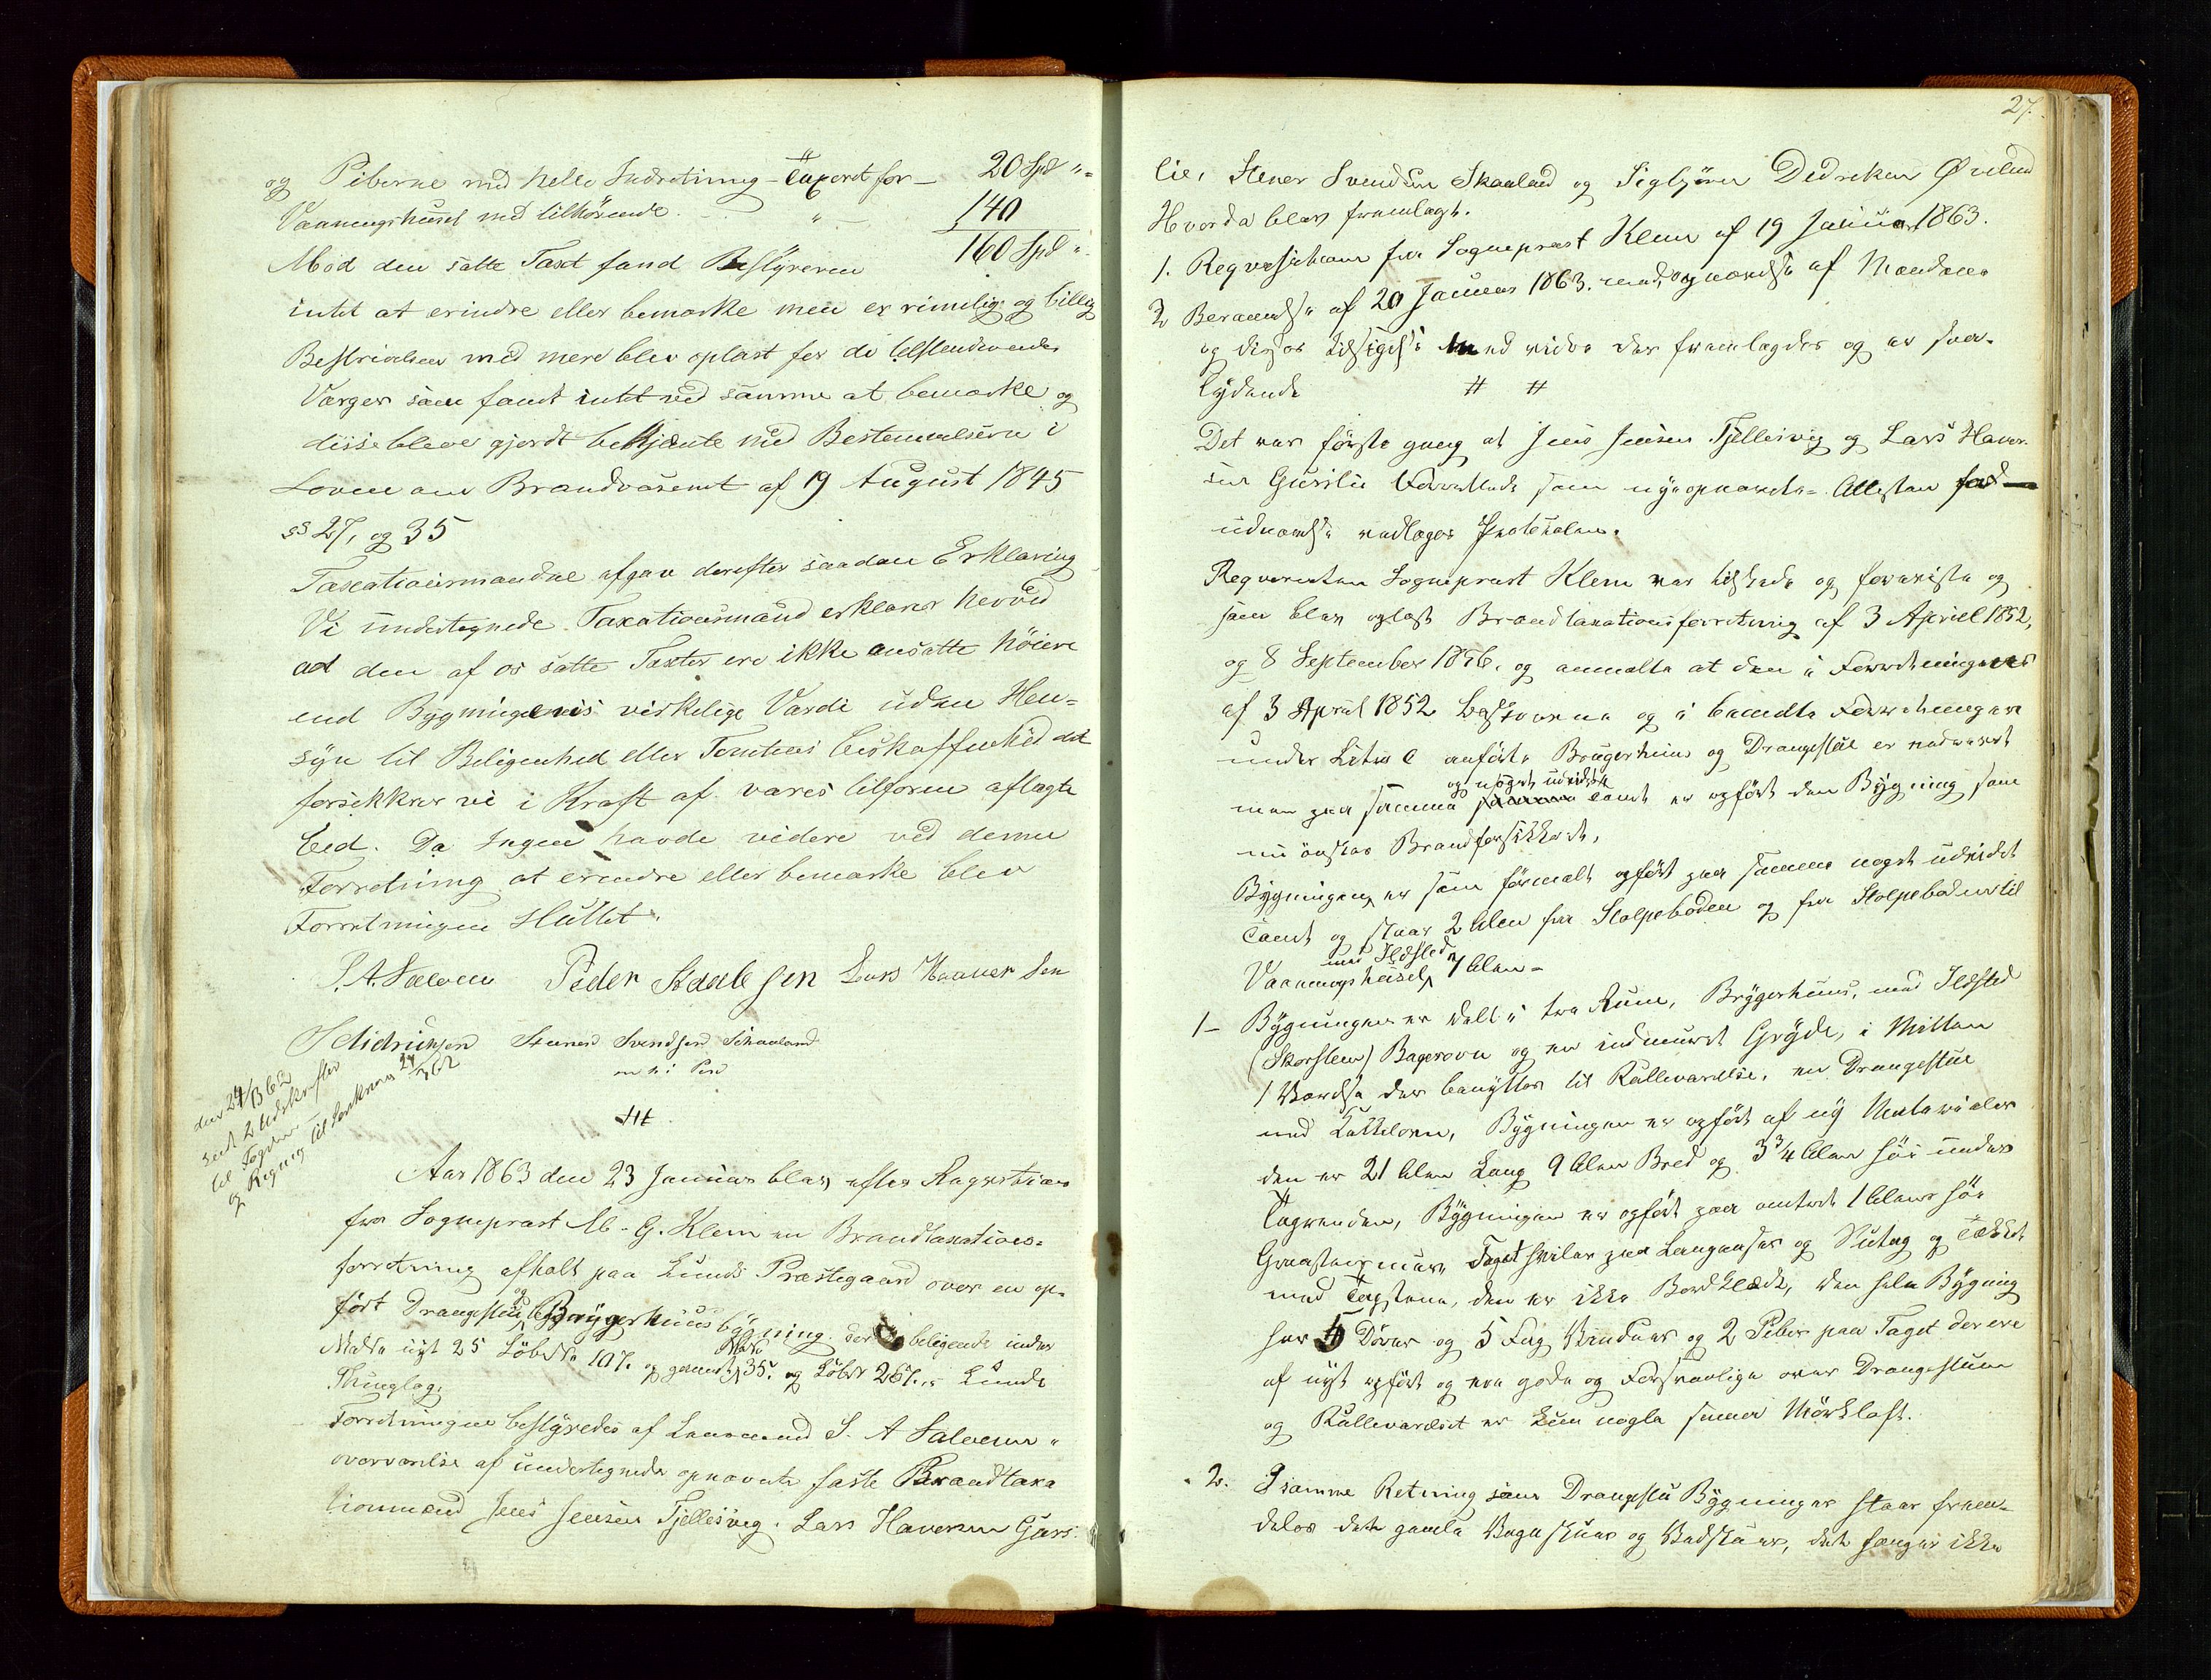 og Piberne med hele Indretning - Taxeret for - 20 Spd "
Vaaningshuset med tilhørende " 140
160 Spd "
Mod den satte Taxt fand Bestyreren
intet at erindre eller bemærke men er rimelig og billig
Beskrivelsen med mere blev oplæst for de
Varger som fandt intet ved samme at bemærke og
disse bleve gjordt bekjænte med Bestemmelserne i
Loven om Brandvæsenet af 19 August 1845
§§ 27, og 35
Taxationsmændne afgav derefter saadan Erklæring
Vi undertegnede Taxationsmænd erklærer herved
ad den af os satte Taxter ere ikke ansatte høiere
end Bygningernes virkelige Værdi uden Hen-
syn til Beligenhed eller Tomtens beskaffenhed det
forsikkrer vi i Kraft af vores tilforen aflagte
Eed. Da Ingen havde videre ved denne
Forretning at erindre eller bemærke blev
Forretningen Sluttet.
S. A. Salvesen Peder Staalesen Lars Haaversen
S Didriksen Stener Svendsen Skaaland
m h: Pen
#
den 24/1 362
sendt 2 Udskrifter
til Fogden
og Regning til
Aar 1863 den 23 Januar blev efter Reqvisition
fra Sogneprest M. G. Klem en Brandtaxations-
forretning afholdt paa Lunds Præstegaard over en op-
ført Drangestue og Bryggerhuus bygning der beligende under
Matr nyt 25 Løbe No 107. og gamelt Matr 35. og Løbe No 267. i Lunde
Thinglag.
Forretningen bestyredes af Lensmand S. A Salvesen i
overværelse af undertegnede opnævnte faste Brandtaxa
tionmænd Jens Jensen Fjellesvig. Lars Haversen Gurs
27.
lie, Stener Svendsen Skaaland og Sigbjørn Didriksen Øvelund
Hvorda blev fremlagt.
1. Reqvisitionen fra Sogneprest Klem af 19 Januar 1863.
2 Berammelse af 20 Januar 1863. med opnævnelse af Mændene
og disses tilsigelse med videre der fremlagdes og er saa-
lydende # #
Det var første gang at Jens Jensen Fjellesvig og Lars Haver-
sen Gurslie som nyeopnævnte - Attesten for
udnævnelse vedlæges Protokolen.
Reqvirenten Sogneprest Klem var tilstæde og foreviste og
som blev oplæst Brandtaxationsforretning af 3 Apriel 1852,
og 8 September 1856. og anmeldte at den i Forretningen
af 3 April 1852 beskrevne og i bemeldte Forretningen
under Litra C anførte Bryggerhuus og Drangestue er nedrevet
men paa samme og noget udvidet Tomt er opført den Bygning som
nu ønskes Brandforsikkeret.
Bygningen er som førmelt opført paa samme noget udvidet
Tomt og staar 2 Alen fra Stolpeboden og fra Stolpeboden til
Vaaningshuset med Ildsted 7 Alen -
1 - Bygningen er delt i tre Rum, Bryggerhuus, med Ildsted
(Skorsteen) Bagerovn og en indmuret Gryde, i Mitten
1 Værelse der benyttes til Rullevarelse, en Drangestue
med Kakkelovn, Bygningen er opført af ny Materialer
den er 21 Alen Lang 9 Alen Bred og 3 3/4 Alen høi under
Tagrenden, Bygningen er opført paa omtrent 1 Alens høi
Graasteensmuur Taget hviler paa Langaaser og Sutag og Tækket
med Tagsteen, den er ikke Bordklædt, den hele Bygning
har 5 Dører og 5 Fag Vinduer og 2 Piber paa Taget der ere
af nyt opført og ere gode og Forsvarlige over Drangestuen
og Rullevarelset er kun nogle smaa Mørkloft.
2. I samme Retning som Drangestu Bygningen staar frem-
deles det gamle og, det hænger ikke